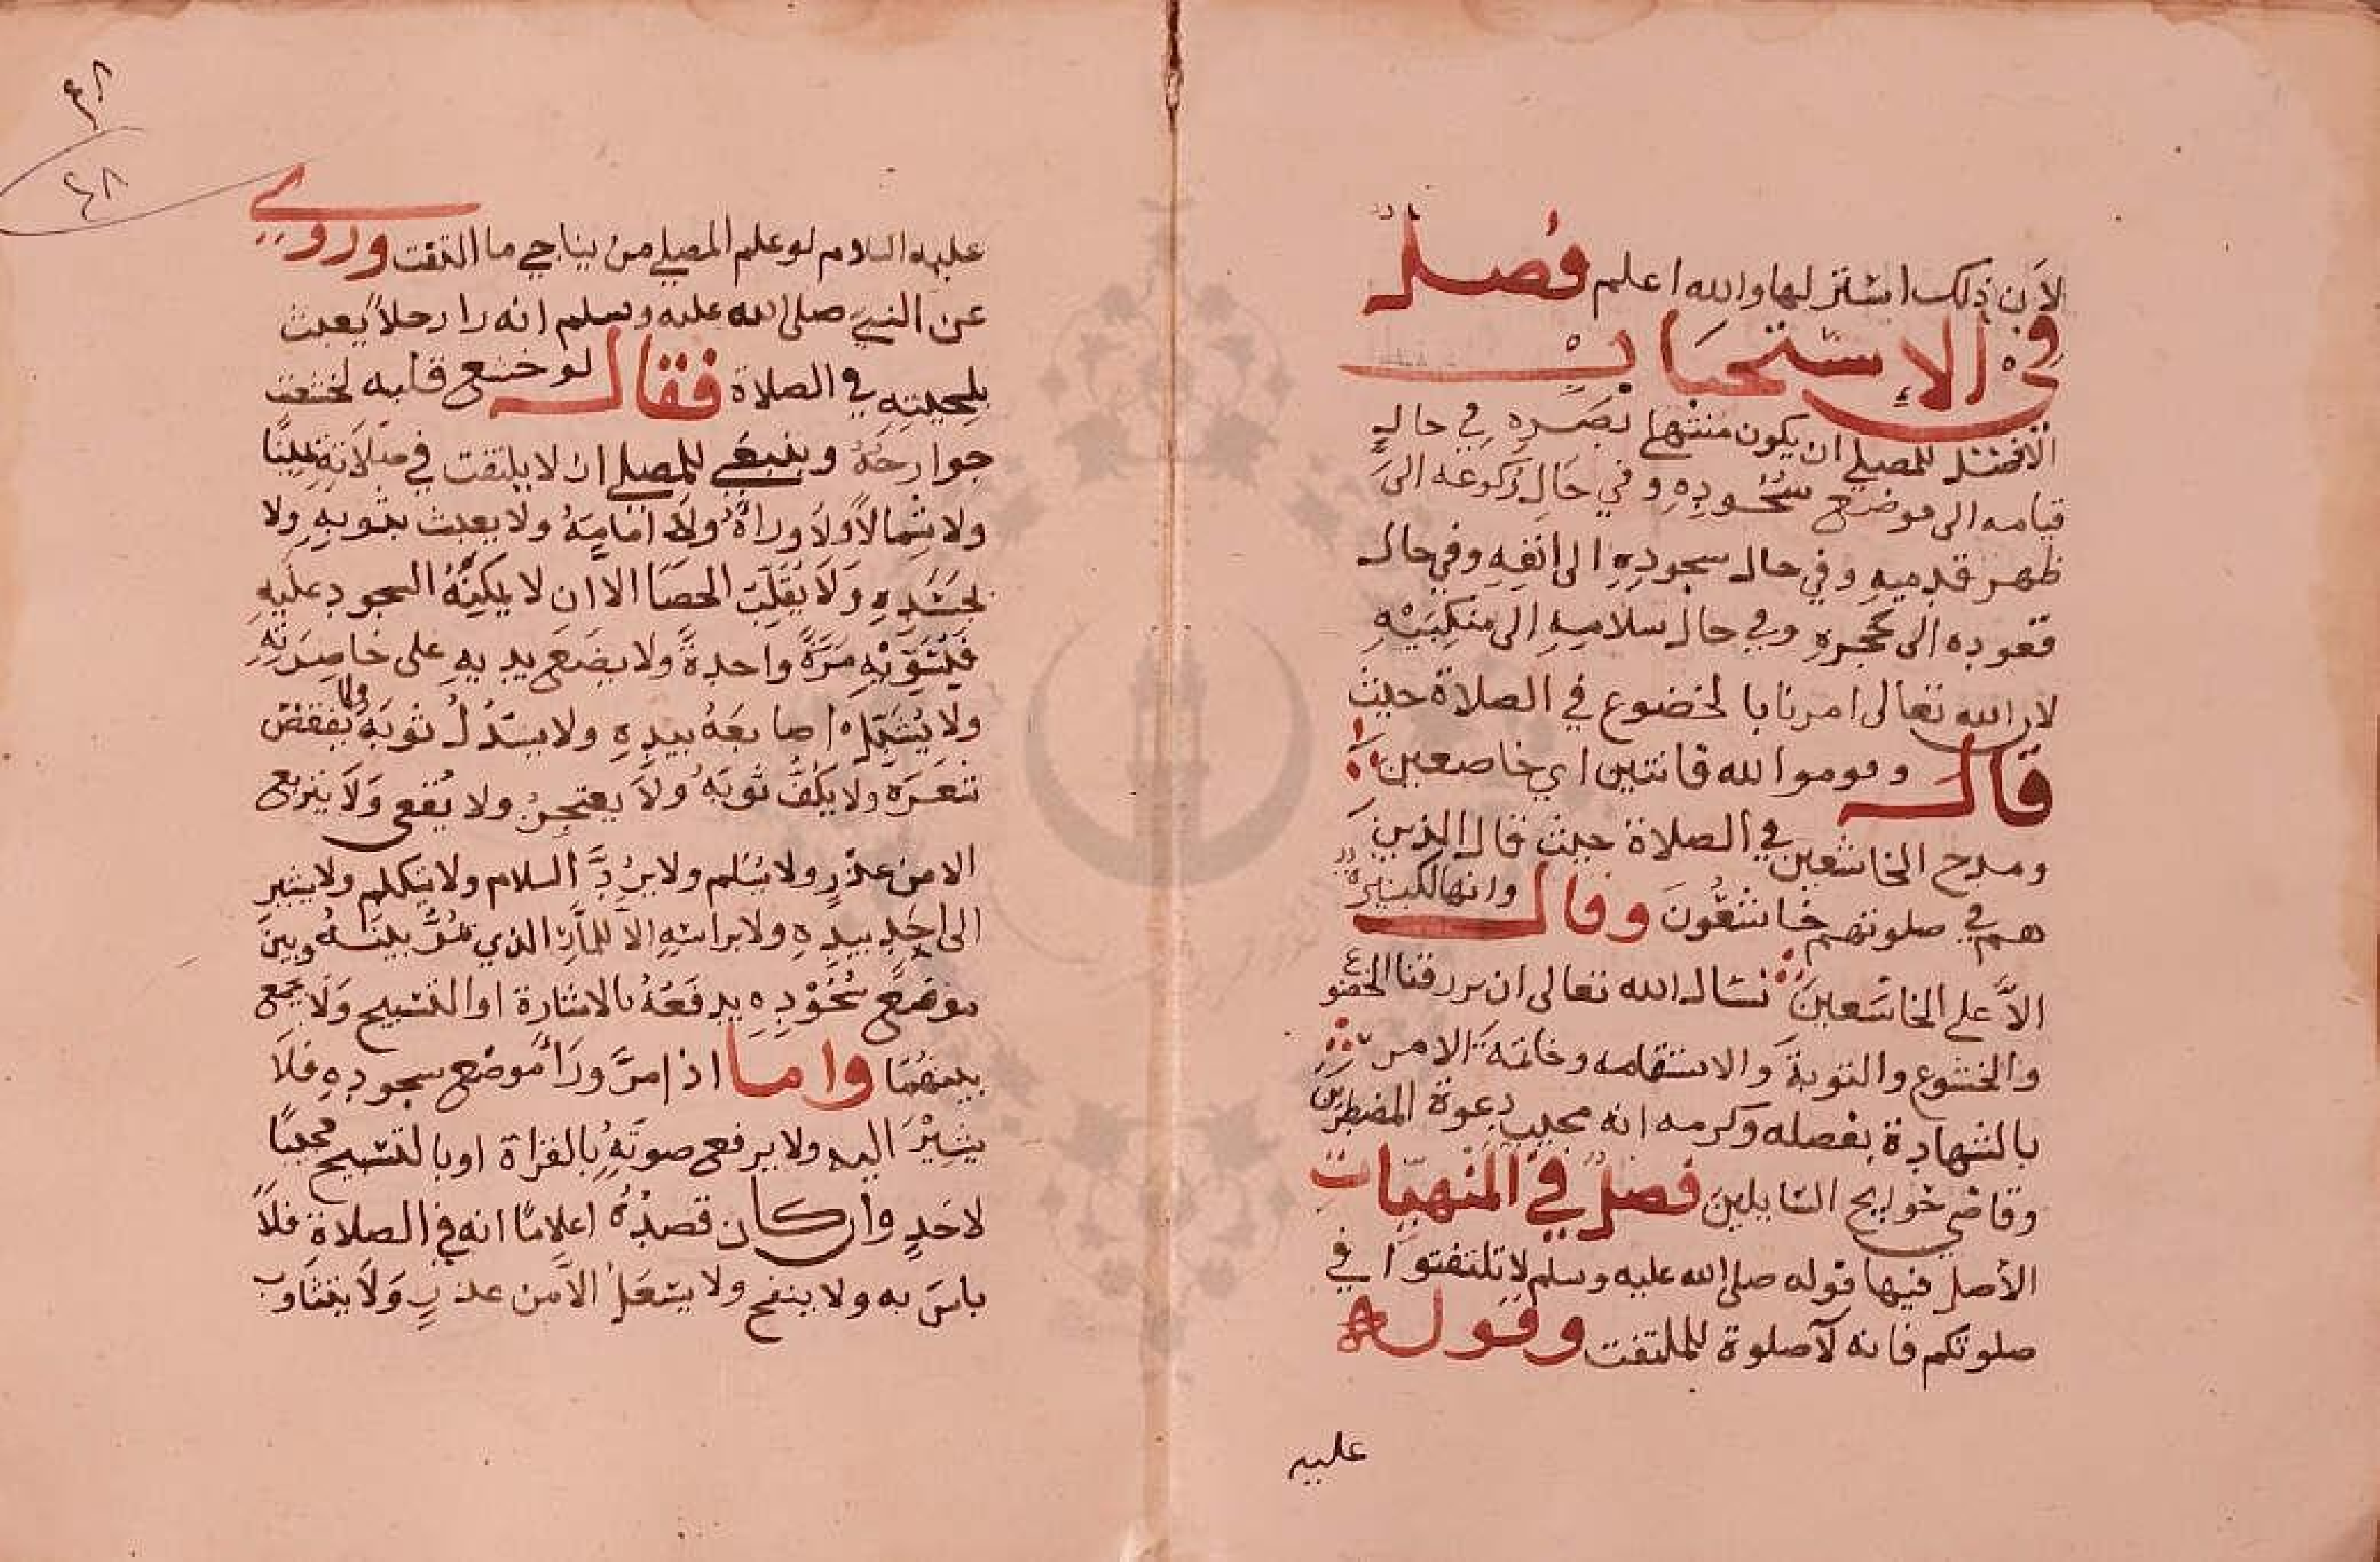 لاَن ذلك استر لها والله اعلم فُصلٌ
فِيْ الاِستحبَابْ
الاَفضل للمصلي ان يكون منتهَا بصَرِهِ في حالِ
قيامه الى موضع سُجُودِهِ وفي حَالِ رُكوعه الىَ
ظهر قدميهِ وفي حال سجودِهِ الى انَفِهِ وفي حال
قعوده الى حُجرهِ وفي حال سلامهِ الى منكِبَيْهِ
لان الله تعالى امرنا بالخضوع في الصلاة حيث
قال وقوموا لله قانتين اي خاضعين
ومدح الخاشعين في الصلاة حيث قال الذينَ
هم في صلوتهم خَاشعُونَ وقال وانها لكبيرةٌ
الاَّ على الخاشعينَ نسال الله تعالى ان يرزقنا الخضوع
والخشوع والتوبةَ والاستقامه وخاتمةَ الامر
بالشهادة بفضله وكرمه انه مجيب دعوة المضطرين
وقاضي حَوايج السَايلينَ فصلٌ في المنهيَات
الأصل فيها قوله صلى الله عليه وسلم لا تلتفتوا في
صلوتكم فانه لاَ صلوة للملتفت وقوله
عليه
٤٨
٤٨
عليه السلام لو علم المصلي من يناجي ما التفت وروي
عن النبي صلى الله عليه وسلم انه را رجلاً يعبث
بلِحيتِهِ في الصلاة فقال لو خشع قلبه لخشعت
جوارحَهُ وينبغي للمصلي ان لا يلتفت في صَلاَتِهِ يمينًا
ولا شمالاً ولاَ وراهُ ولاَ امَامهُ ولا يعبث بثوبهِ ولا
بجسَدِهِ وَلاَ يُقَلِّبُ الحصَا الا ان لا يمكِنُهُ السجود عليهِ
فيُسَوِّيْهِ مَرَةً واحدةً ولا يضَع يديهِ على خَاصِرَتِهِ
ولا يُشَبِّك اصابعَهُ بيدِهِ ولا يسدُلُ ثوبَهُ ولا يُعقص
شعَرَه ولا يكفُّ ثوبَهُ ولاَ يعتجرُ ولا يُقعى وَلاَ يتربع
الا من عذرٍ ولا يسَلم ولا يرُدَّ السلام ولا يتكلم ولا يشير
الى احَدٍ بيدِهِ ولا براسهِ الاَ للمآرِ الذي يمُرُّ بينَهُ وبينَ
موضعِ سُجُوْدِهِ يدفعَهُ بالاشارة او التسبيح وَلاَ يجمع
بينهُمَا واما اذا مرَّ وراءَ موضع سجودِهِ فلاَ
يشِيْرَ اليه ولا يرفع صوتَهِ بالقراة او بالتسبيح مجيبًا
لاحَدٍ وان كان قصدُهُ اعلامًا انه في الصلاة فلاَ
باسَ به ولا ينفخ ولا يسعَلُ الاَ من عذرٍ وَلاَ يتثَاوَب